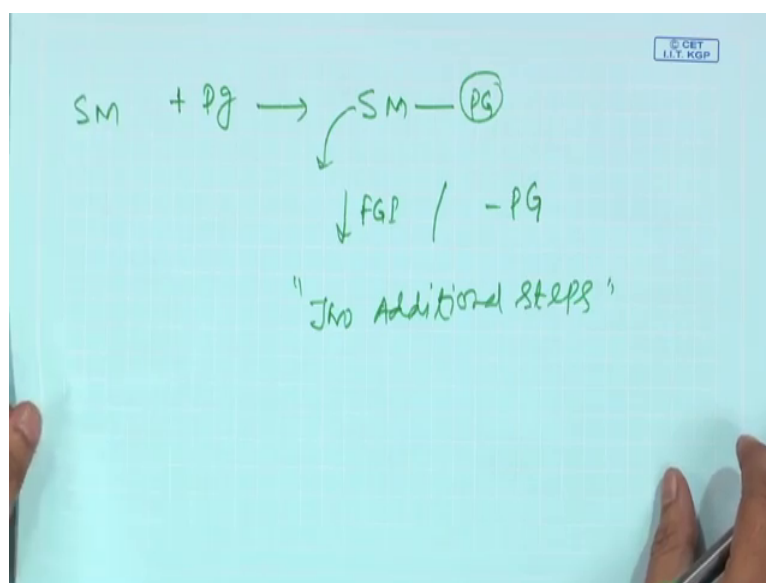 © CET
I.I.T. KGP
SM + Pg → SM — PG
↓ FGI / - PG
"Two Additional Steps"